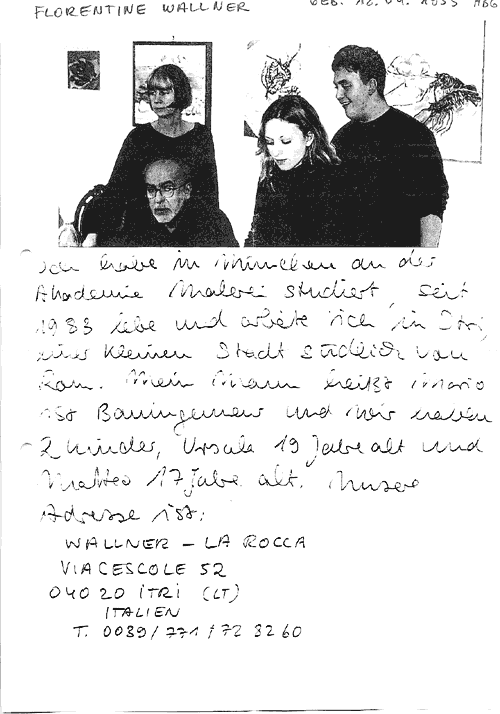 FLORENTINE WALLNER
Ich habe in München an der
Akademie Malerei studiert, seit
1983 lebe und arbeite ich in Itri,
einer kleinen Stadt südlich von
Rom. Mein Mann heißt Mario
ist Bauingenieur und wir haben
2 Kinder, Ursula 19 Jahre alt und
Matteo 17 Jahre alt. Unsere
Adresse ist:
WALLNER – LA ROCCA
VIA CESCOLE 52
04020 ITRI (LT)
ITALIEN
T. 0039/771/723260